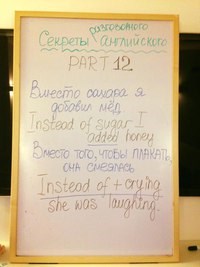 Секреты разговорного Английского
PART 12
Вместо сахара я
добавил мёд
Instead of sugar I
added honey
Вместо того, чтобы плакать,
она смеялась
Instead of + crying
she was laughing.